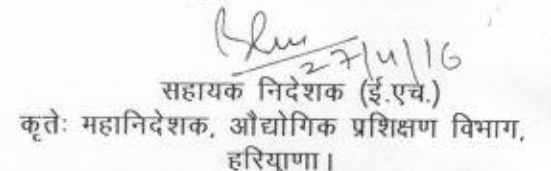 27/4/16
सहायक निदेशक (ई.एच.)
कृतेः महानिदेशक, औद्योगिक प्रशिक्षण विभाग,
हरियाणा।